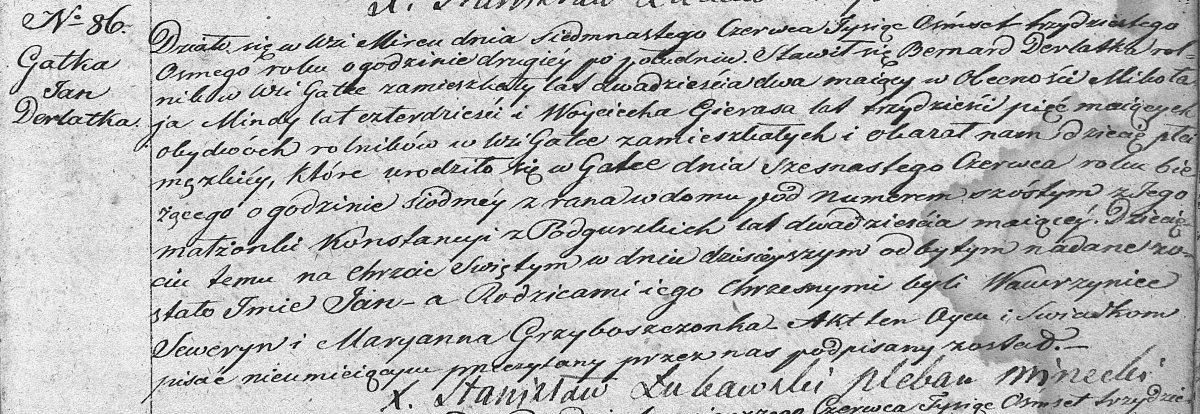 No 86.
Gałka
Jan
Derlatka.
Działo się w Wsi Mircu dnia siedmnastego Czerwca Tysiąc Osmset trzydziestego
Osmego roku o godzinie drugiey po południu. Stawił się Bernard Derlatka rol-
nik w Wsi Gałce zamieszkały lat dwadzieścia dwa maiący w Obecności Mikoła-
ja Mindy lat czterdzieści i Woyciecha Gierasa lat trzydzieści pięć maiących
obydwóch rolników w Wsi Gałce zamieszkałych i okazał nam dziecię płci
męzkiéy, które urodziło się w Gałce dnia szesnastego Czerwca roku bie-
żącego o godzinie siódméy z rana w domu pod numerem szóstym z Jego
małżonki Konstancyi z Podgurskich lat dwadzieścia maiącéy. Dziecię-
ciu temu na Chrzcie Swiętym w dniu dzisieyszym odbytym nadane zo-
stało Imie Jan – a Rodzicami iego Chrzesnymi byli Wawrzyniec
Seweryn i Maryanna Grzyboszczonka – Akt ten Oycu i Swiadkom
pisać nieumieiącym przeczytany przez nas podpisany został. –
X. Stanisław Łubawski pleban Mirecki
Czerwca Tysiąc Osmset trzydzie-